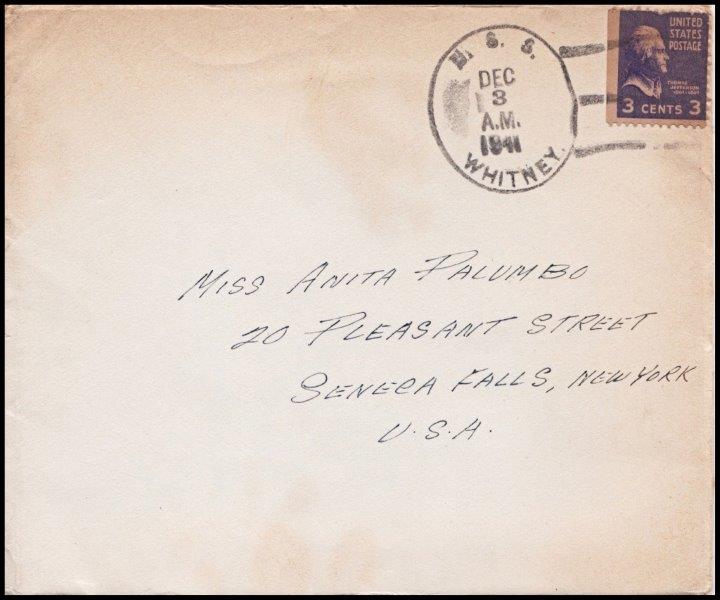 U. S. S.
DEC
3
A.M.
1941
WHITNEY.
UNITED
STATES
POSTAGE
THOMAS
JEFFERSON
1801-1809
3 CENTS 3
MISS ANITA PALUMBO
20 PLEASANT STREET
SENECA FALLS, NEW YORK
U.S.A.